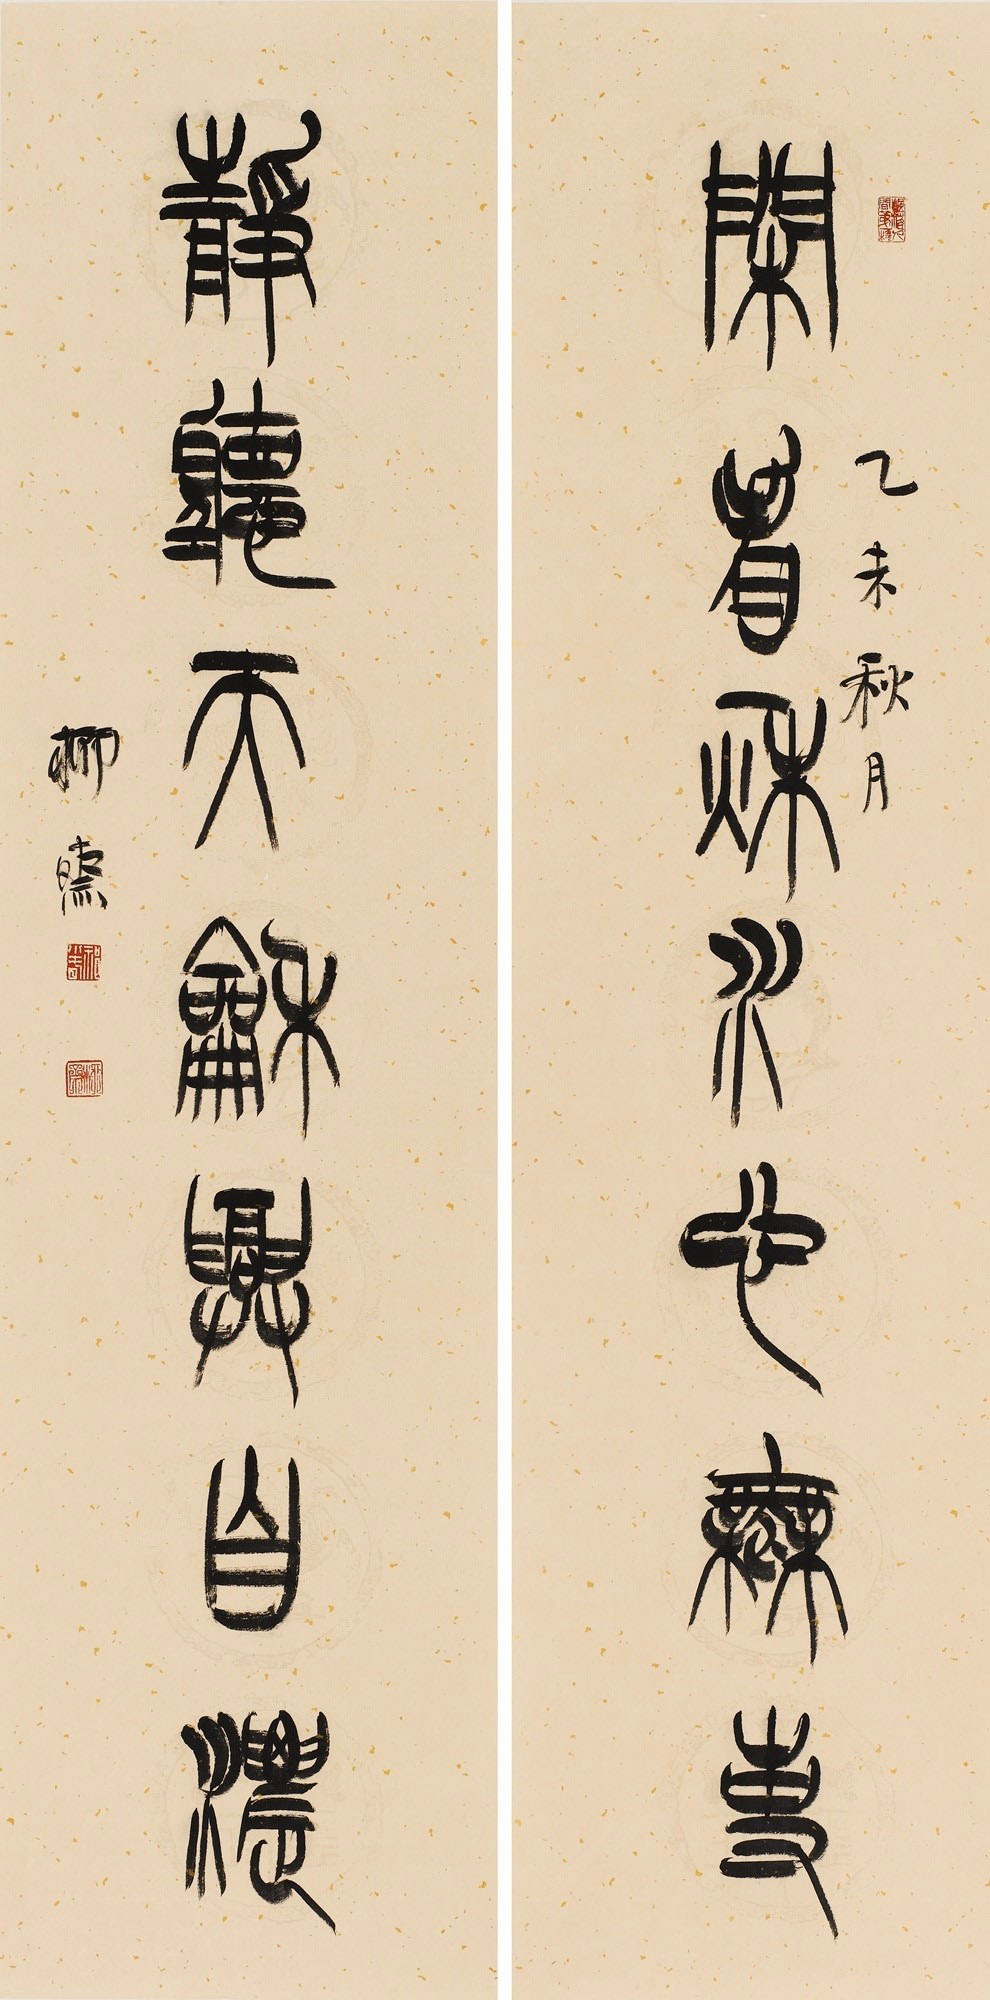 閑看秋水心無事
乙未秋月
靜聽天龢興自濃